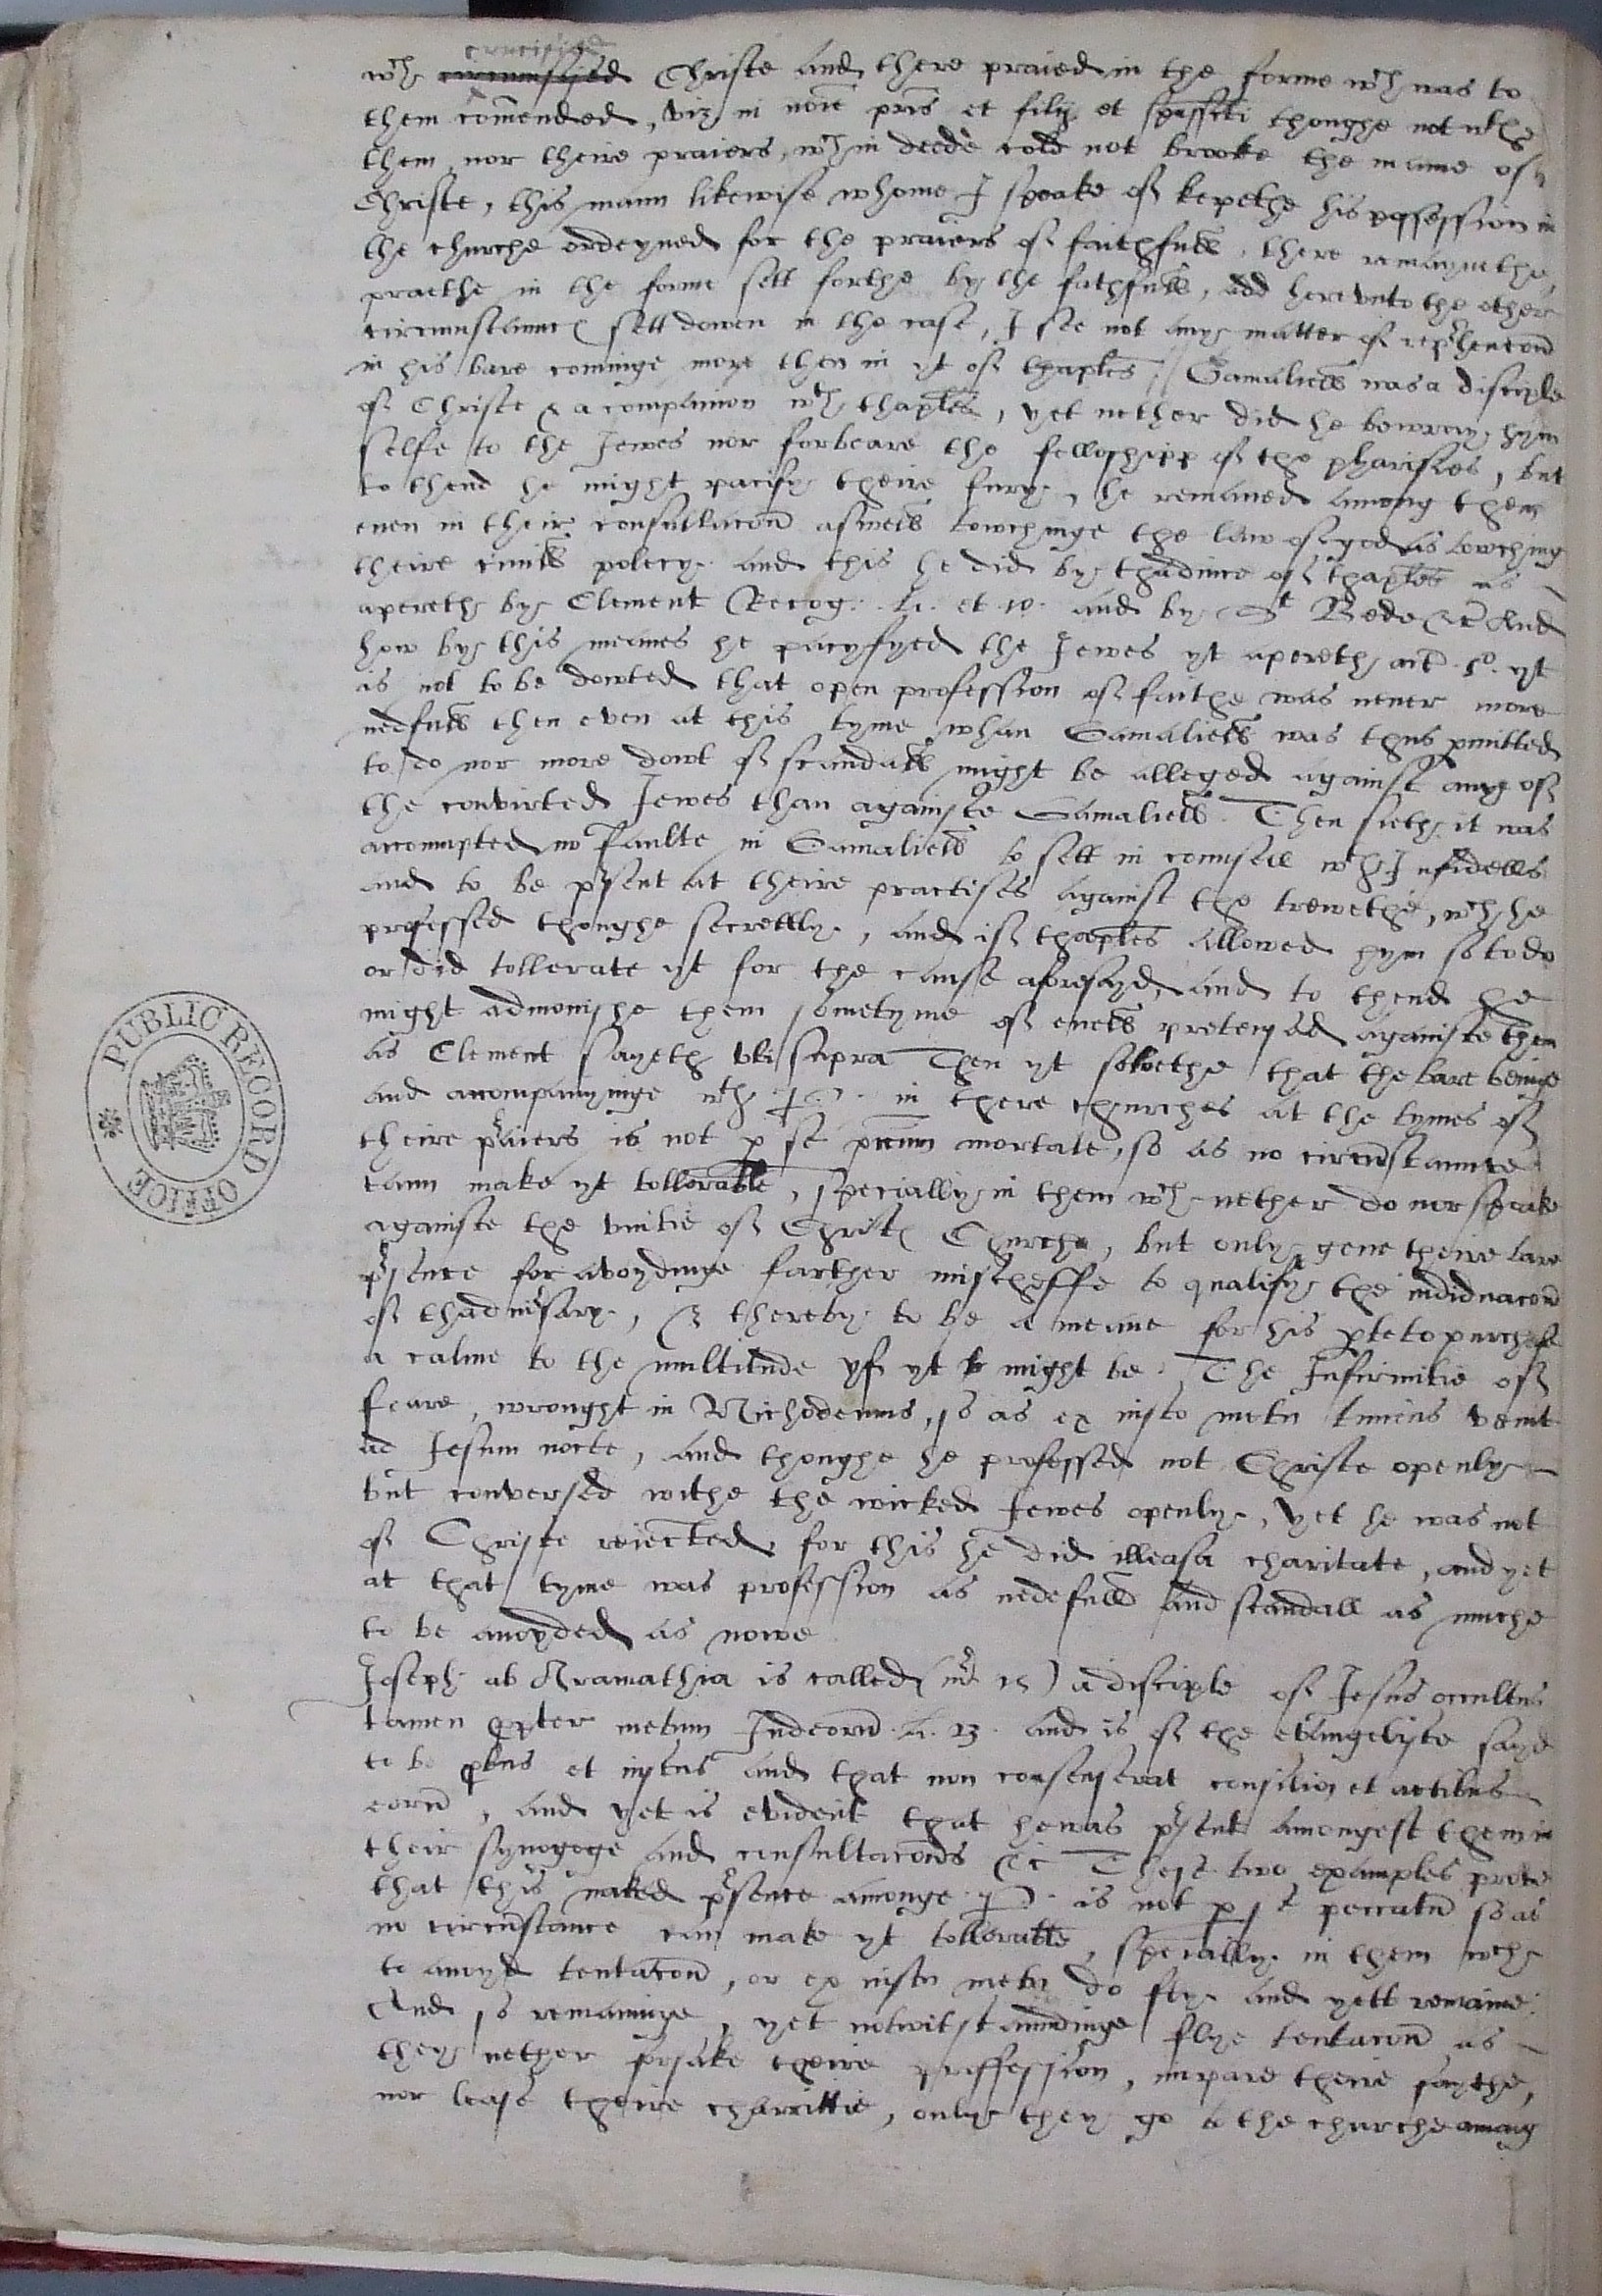 crucified
wch circumsised Christe and there praied in the forme wch was to
them comended, viz in noie pris et filij et spussti thoughe not wth
them nor theire praiers, wch in deede cold not brooke the name of
Christe, this mann likewise whome I speake of kepethe his possession in
the churche ordeyned for the praiers of faithfull, there remaynethe,
praethe in the forme sett forthe by the fathfull, add herevnto the other
circumstances sett down in the case, I see not any matter of reprhencon
in his bare cominge more then in yt of thaples. Gamaliell was a disciple
of Christe & a companion wth thaples, yet nether did he bewray hym
selfe to the Jewes nor forbeare the fellowshipp of the pharisies, but
to thend he might pacify theire fury, he remained among them
euen in their consultacon aswell towchinge the law of god as towching
theire ciuill polecy and this he did by thaduice of thaples as
apereth by Clement Recog. li. et 10. and by St Bede &c And
how by this meanes he pacyfyed the Jewes yt apereth act. 5o. yt
is not to be dowted that open profession of faithe was neuer more
nedfull then even at this tyme whan Gamaliell was thus pmitted
to do nor more dowt of scandall might be alleged against any of
the convirted Jewes than againste Gamaliell. Then sieth it was
accompted no faulte in Gamaliell to sett in counsell wth Infidells
and to be psent at theire practises against the trewethe, wch he
professed thoughe secrettly, and if thaples allowed hym so to do
or did tollerate yt for the cause aforesayd, and to thend he
might admonishe them sometyme of euells pretended againste them
as Clement sayeth vbi supra Then yt folwethe that the bare beinge
and accompanyinge wth P. in there churches at the tymes of
theire praiers is not p se pccum mortale, so as no circumstannce
cann make yt tollorable, specially in them wch nether do nor speake
againste the vnitie of Christs Churche, but only geue theire bare
psence for avoydinge farther mischeffe to qualify the indidnacon
of thaduisary, & thereby to be a meane for his pte to purchase
a calme to the multitude yf yt might be. The Infirmitie of
feare, wrought in Nichodemus, so as ex iusto metu timens venit
ad Jesum nocte, and thoughe he professed not Christe openly
but conversed withe the wicked Jewes openly, yet he was not
of Christe reiected, for this he did illeasa charitate, and yet
at that tyme was profession as nedefull and scandall as muche
to be auoyded as nowe
Joseph ab Aramathia is called (mr 15) a disciple of Jesus occultus
tamen ppter metum Judeorum. li. 23. and is of the evangelyste sayd
to be bonus et iustus and that non consenserat consilio et actibus
eorum, and yet is evident that he was psent amongest them in
their synogoge and consultacons &c These two examples prove
that this naked psence amonge P. is not p se peccatum so as
no circumstance can make yt tollorable, specially in them wch
to auoyd tentacon, or ex iusto metu do fly and yett remaine.
And so remaininge, yet notwithstanndinge flye tentacon as
they nether forsake theire proffession, impare theire faythe,
nor lease theire charittie, only they go to the churche amang
PUBLIC RECORD OFFICE